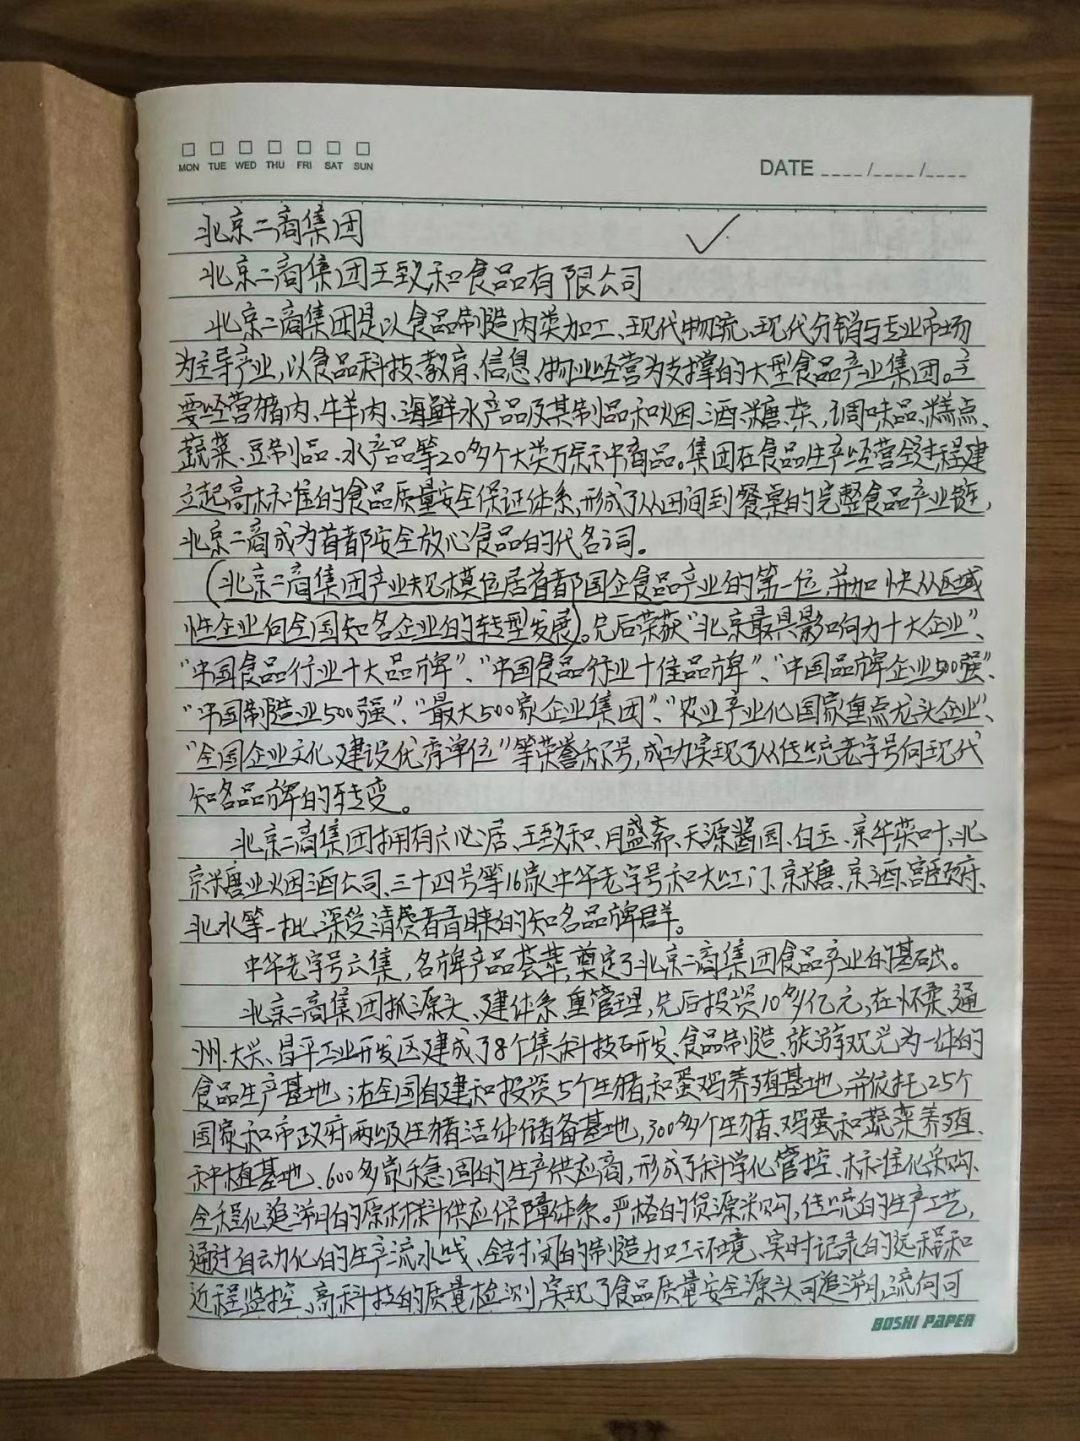 MON TUE WED THU FRI SAT SUN
DATE ____/____/____
北京二商集团
北京二商集团王致和食品有限公司
北京二商集团是以食品制造肉类加工、现代物流、现代分销与专业市场
为主导产业,以食品科技、教育、信息、物业经营为支撑的大型食品产业集团。主
要经营猪肉、牛羊肉、海鲜水产品及其制品和烟、酒、糖、茶,调味品、糕点、
蔬菜、豆制品、水产品等20多个大类万余种商品。集团在食品生产经营全过程建
立起高标准的食品质量安全保证体系,形成了从田间到餐桌的完整食品产业链,
北京二商成为首都安全放心食品的代名词。
(北京二商集团产业规模位居首都国企食品产业的第一位,并加快从区域
性企业向全国知名企业的转型发展)。先后荣获“北京最具影响力十大企业”、
“中国食品行业十大品牌”、“中国食品行业十佳品牌”、“中国品牌企业500强”、
“中国制造业500强”、“最大500家企业集团”、“农业产业化国家重点龙头企业”、
“全国企业文化建设优秀单位”等荣誉称号,成功实现了从传统老字号向现代
知名品牌的转变。
北京二商集团拥有六必居、王致和、月盛斋、天源酱园、白玉、京华茶叶、北
京糖业烟酒公司、三十四号等16家中华老字号和大红门、京糖、京酒、宫颐府、
北水等一批深受消费者青睐的知名品牌群。
中华老字号云集,名牌产品荟萃,奠定了北京二商集团食品产业的基础。
北京二商集团抓源头、建体系、重管理,先后投资10多亿元,在怀柔、通
州、大兴、昌平工业开发区建成了8个集科技研发、食品制造、旅游观光为一体的
食品生产基地;在全国自建和投资5个生猪和蛋鸡养殖基地,并依托25个
国家和市政府两级生猪活体储备基地,300多个生猪、鸡蛋和蔬菜养殖、
种植基地、600多家稳固的生产供应商,形成了科学化管控、标准化采购、
全程化追溯的原材料供应保障体系。严格的货源采购,传统的生产工艺,
通过自动化的生产流水线、全封闭的制造加工环境、实时记录的远程和
近程监控、高科技的质量检测,实现了食品质量安全源头可追溯,流向可
BOSHI PAPER